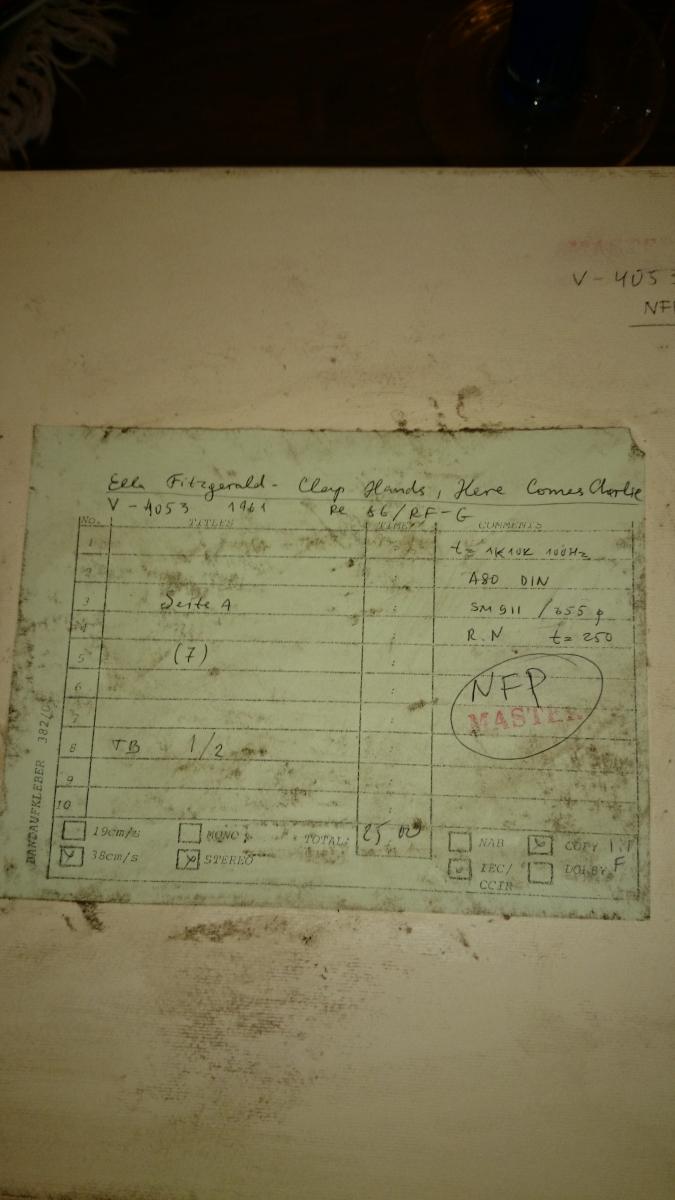 MASTER
V-4053
NF
Ella Fitzgerald - Clap Hands, Here Comes Charlie
V-4053 1961 Re 86/RF-G
No. TITLES TIME COMMENTS
1 t= 1K 10K 100Hz
2 A80 DIN
3 Seite A SM 911 /
4 R.N t= 250
5 (7)
6 NFP
7 MASTER
8 TB 1/2
9
10
19cm/s MONO TOTAL: 25 00 NAB COPY 1:1
38cm/s STEREO IEC/CCIR DOLBY F
BANDAUFKLEBER 382/